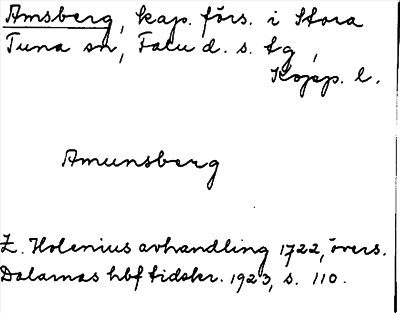 Amsberg, kap. förs. i Stora
Tuna sn, Falu d. s. tg,
Kopp. l.
Amunsberg
Z. Holenius avhandling 1722, övers.
Dalarnas hbf tidskr. 1923, s. 110.